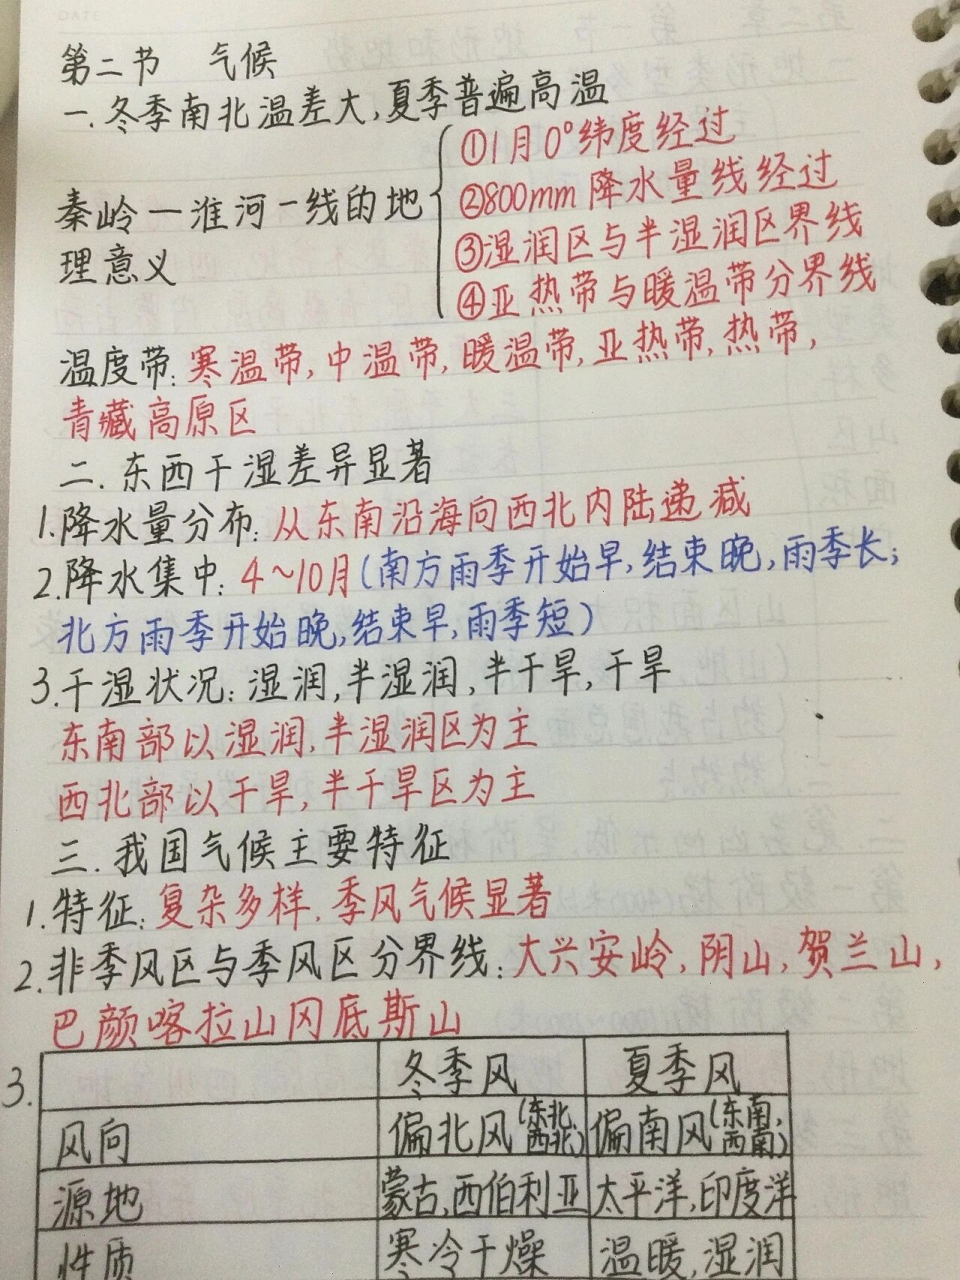 第二节 气候
一.冬季南北温差大,夏季普遍高温
秦岭—淮河一线的地
理意义
①1月0°纬度经过
②800mm降水量线经过
③湿润区与半湿润区界线
④亚热带与暖温带分界线
温度带:寒温带,中温带,暖温带,亚热带,热带,
青藏高原区
二.东西干湿差异显著
1.降水量分布:从东南沿海向西北内陆递减
2.降水集中:4~10月(南方雨季开始早,结束晚,雨季长;
北方雨季开始晚,结束早,雨季短)
3.干湿状况:湿润,半湿润,半干旱,干旱
东南部以湿润,半湿润区为主
西北部以干旱,半干旱区为主
三.我国气候主要特征
1.特征:复杂多样.季风气候显著
2.非季风区与季风区分界线:大兴安岭,阴山,贺兰山,
巴颜喀拉山冈底斯山
3. 冬季风 夏季风
风向 偏北风(东北,西北) 偏南风(东南,西南)
源地 蒙古,西伯利亚 太平洋,印度洋
性质 寒冷干燥 温暖,湿润